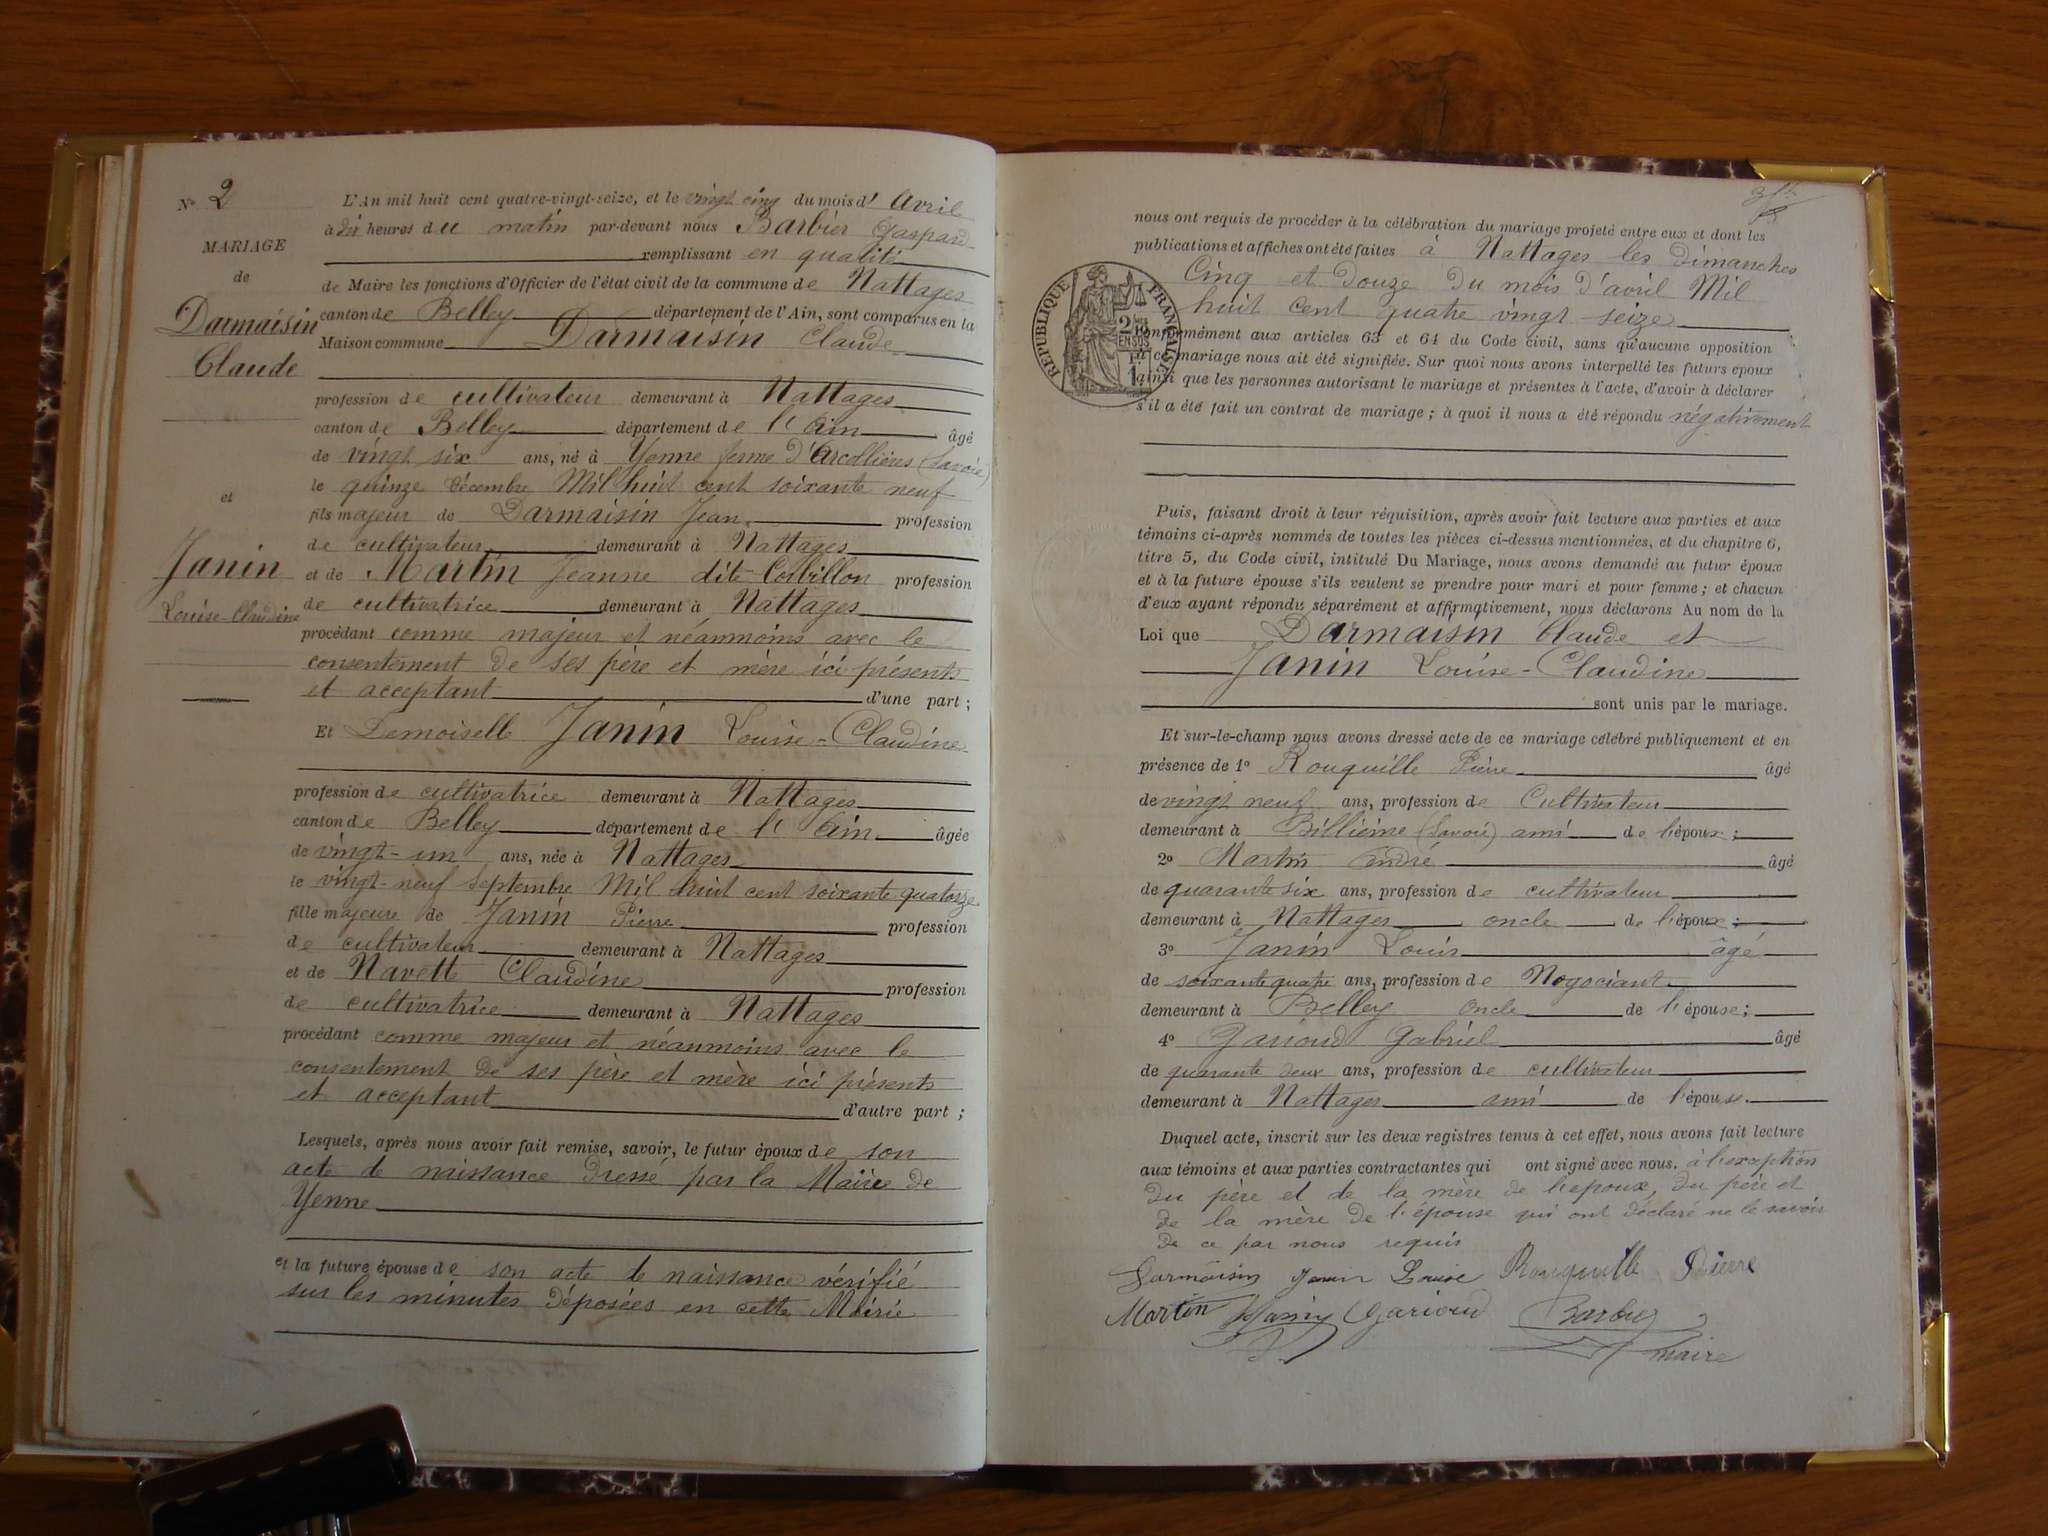 N° 2
MARIAGE
de
Darmaisin
Claude
et
Janin
Louise-Claudine
L'An mil huit cent quatre-vingt-seize, et le vingt cinq du mois d' Avril
à dix heures du matin par-devant nous Barbier Gaspard
remplissant en qualité
de Maire les fonctions d'Officier de l'état civil de la commune de Nattages
canton de Belley département de l'Ain, sont comparus en la
Maison commune Darmaisin Claude
profession de cultivateur demeurant à Nattages
canton de Belley département de l'Ain âgé
de vingt six ans, né à Yenne ferme d'Arcollières (Savoie)
le quinze Décembre Mil huit cent soixante neuf
fils majeur de Darmaisin Jean profession
de cultivateur demeurant à Nattages
et de Martin Jeanne dite Corbillon profession
de cultivatrice demeurant à Nattages
procédant comme majeur et néanmoins avec le
consentement de ses père et mère ici présents
et acceptant d'une part ;
Et Demoiselle Janin Louise-Claudine
profession de cultivatrice demeurant à Nattages
canton de Belley département de l'Ain âgée
de vingt-un ans, née à Nattages
le vingt-neuf Septembre Mil huit cent soixante quatorze
fille majeure de Janin Pierre profession
de cultivateur demeurant à Nattages
et de Navette Claudine profession
de cultivatrice demeurant à Nattages
procédant comme majeur et néanmoins avec le
consentement de ses père et mère ici présents
et acceptant d'autre part ;
Lesquels, après nous avoir fait remise, savoir, le futur époux de son
acte de naissance dressé par la Mairie de
Yenne
et la future épouse de son acte de naissance vérifié
sur les minutes déposées en cette Mairie
nous ont requis de procéder à la célébration du mariage projeté entre eux et dont les
publications et affiches ont été faites à Nattages les dimanches
Cinq et Douze du mois d'avril Mil
huit cent quatre vingt seize
RÉPUBLIQUE FRANÇAISE
conformément aux articles 63 et 64 du Code civil, sans qu'aucune opposition
à ce mariage nous ait été signifiée. Sur quoi nous avons interpellé les futurs epoux
ainsi que les personnes autorisant le mariage et présentes à l'acte, d'avoir à déclarer
s'il a été fait un contrat de mariage ; à quoi il nous a été répondu négativement
Puis, faisant droit à leur réquisition, après avoir fait lecture aux parties et aux
témoins ci-après nommés de toutes les pièces ci-dessus mentionnées, et du chapitre 6,
titre 5, du Code civil, intitulé Du Mariage, nous avons demandé au futur époux
et à la future épouse s'ils veulent se prendre pour mari et pour femme ; et chacun
d'eux ayant répondu séparément et affirmativement, nous déclarons Au nom de la
Loi que Darmaisin Claude et
Janin Louise-Claudine
sont unis par le mariage.
Et sur-le-champ nous avons dressé acte de ce mariage célébré publiquement et en
présence de 1° Rouquille Pierre âgé
de vingt neuf ans, profession de Cultivateur
demeurant à Billième (Savoie) ami de l'époux ;
2° Martin André âgé
de quarante six ans, profession de cultivateur
demeurant à Nattages oncle de l'époux ;
3° Janin Louis âgé
de soixante quatre ans, profession de Négociant
demeurant à Belley oncle de l'épouse ;
4° Garioud Gabriel âgé
de quarante deux ans, profession de cultivateur
demeurant à Nattages ami de l'épouse.
Duquel acte, inscrit sur les deux registres tenus à cet effet, nous avons fait lecture
aux témoins et aux parties contractantes qui ont signé avec nous. à l'exception
du père et de la mère de l'époux, du père et
de la mère de l'épouse qui ont déclaré ne le savoir
de ce par nous requis
Darmaisin Janin Louise Rouquille Pierre
Martin Janin Garioud Barbier
maire